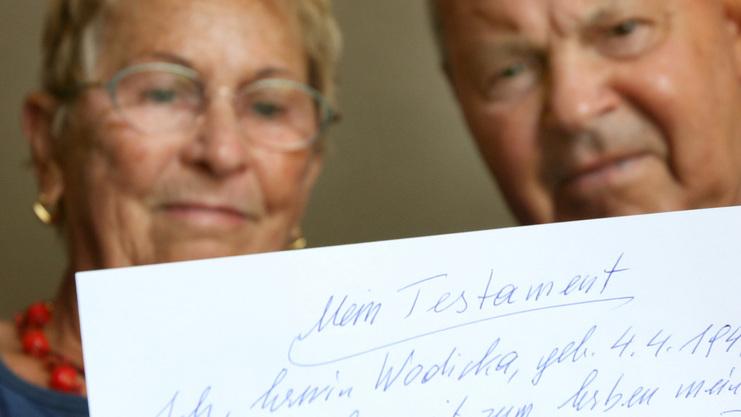 Mein Testament
Ich, Erwin Wodicka, geb. 4.4.194
zum Erben mein